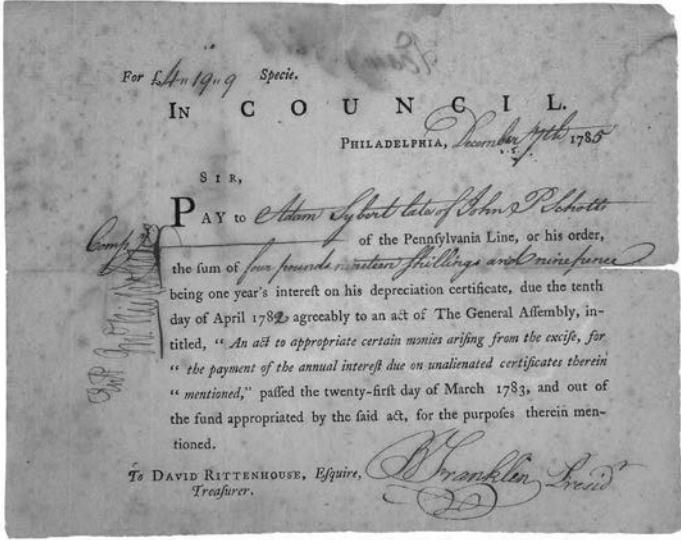 For £4" 19" 9 Specie.
IN COUNCIL.
PHILADELPHIA, December 7th 1785
SIR,
PAY to Adam Sybert late of John P Schotts
Compy
of the Pennſylvania Line, or his order,
the sum of four pounds nineteen ſhillings and ninepence
being one year's intereſt on his depreciation certificate, due the tenth
day of April 1782 agreeably to an act of The General Aſſembly, in-
titled, “ An act to appropriate certain monies ariſing from the exciſe, for
“ the payment of the annual intereſt due on unalienated certificates therein
“ mentioned,” paſſed the twenty-firſt day of March 1783, and out of
the fund appropriated by the ſaid act, for the purpoſes therein men-
tioned.
To DAVID RITTENHOUSE, Eſquire,
Treaſurer.
B Franklin Presidt